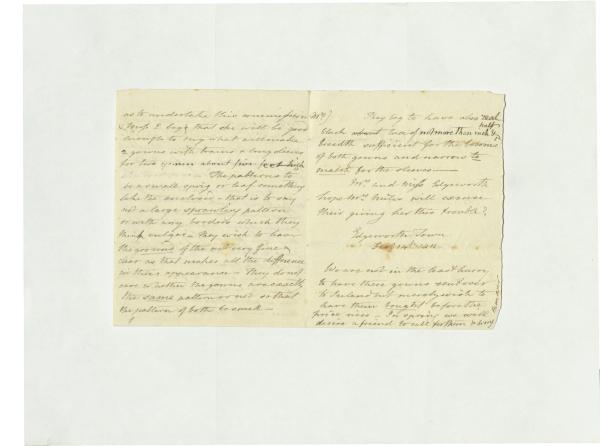 as to undertake this commission Mrs
& Miss E begs that she will be good
enough to buy what will make
2 gowns with trains & long sleeves
for two women about five feet high
The patterns to
be a small sprig or leaf something
like the enclosed - that is to say
not a large sprawling pattern
or with any borders which they
think vulgar - They wish to have
the ground of the very fine &
clear as that makes all the difference
in their appearance - They do not
care whether the gowns are exactly
the same pattern or not so that
the pattern of both be small -
They beg to have also real
black lace of not more than inch &
half
breadth sufficient for the bosoms
of both gowns and narrow to
match for the sleeves -
Mrs and Miss Edgeworth
hope Mrs will excuse
their giving her this trouble.
Edgeworth Town
We are not in the least hurry
to have these gowns sent over
to Ireland but merely wish to
have them bought before the
price rises - In spring we will
desire a friend to call for them & bring